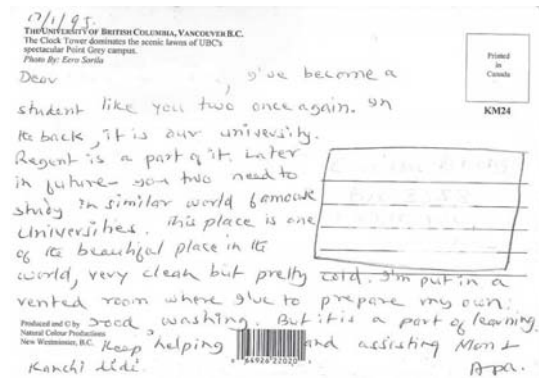 17/1/95.
THE UNIVERSITY OF BRITISH COLUMBIA, VANCOUVER B.C.
The Clock Tower dominates the scenic lawns of UBC's
spectacular Point Grey campus.
Photo By: Eero Sorila
Printed
in
Canada
KM24
Dear , I've become a
student like you two once again. In
the back, it is our university.
Regent is a part of it. Later
in future- you two need to
study in similar world famouse
Universities. This place is one
of the beautiful place in the
world, very clean but pretty cold. I'm put in a
vented room where I've to prepare my own
food, washing. But it is a part of learning.
Keep helping and assisting Mom &
Kanchi didi. Apa.
Produced and © by
Natural Colour Productions
New Westminster, B.C.
64926 22020